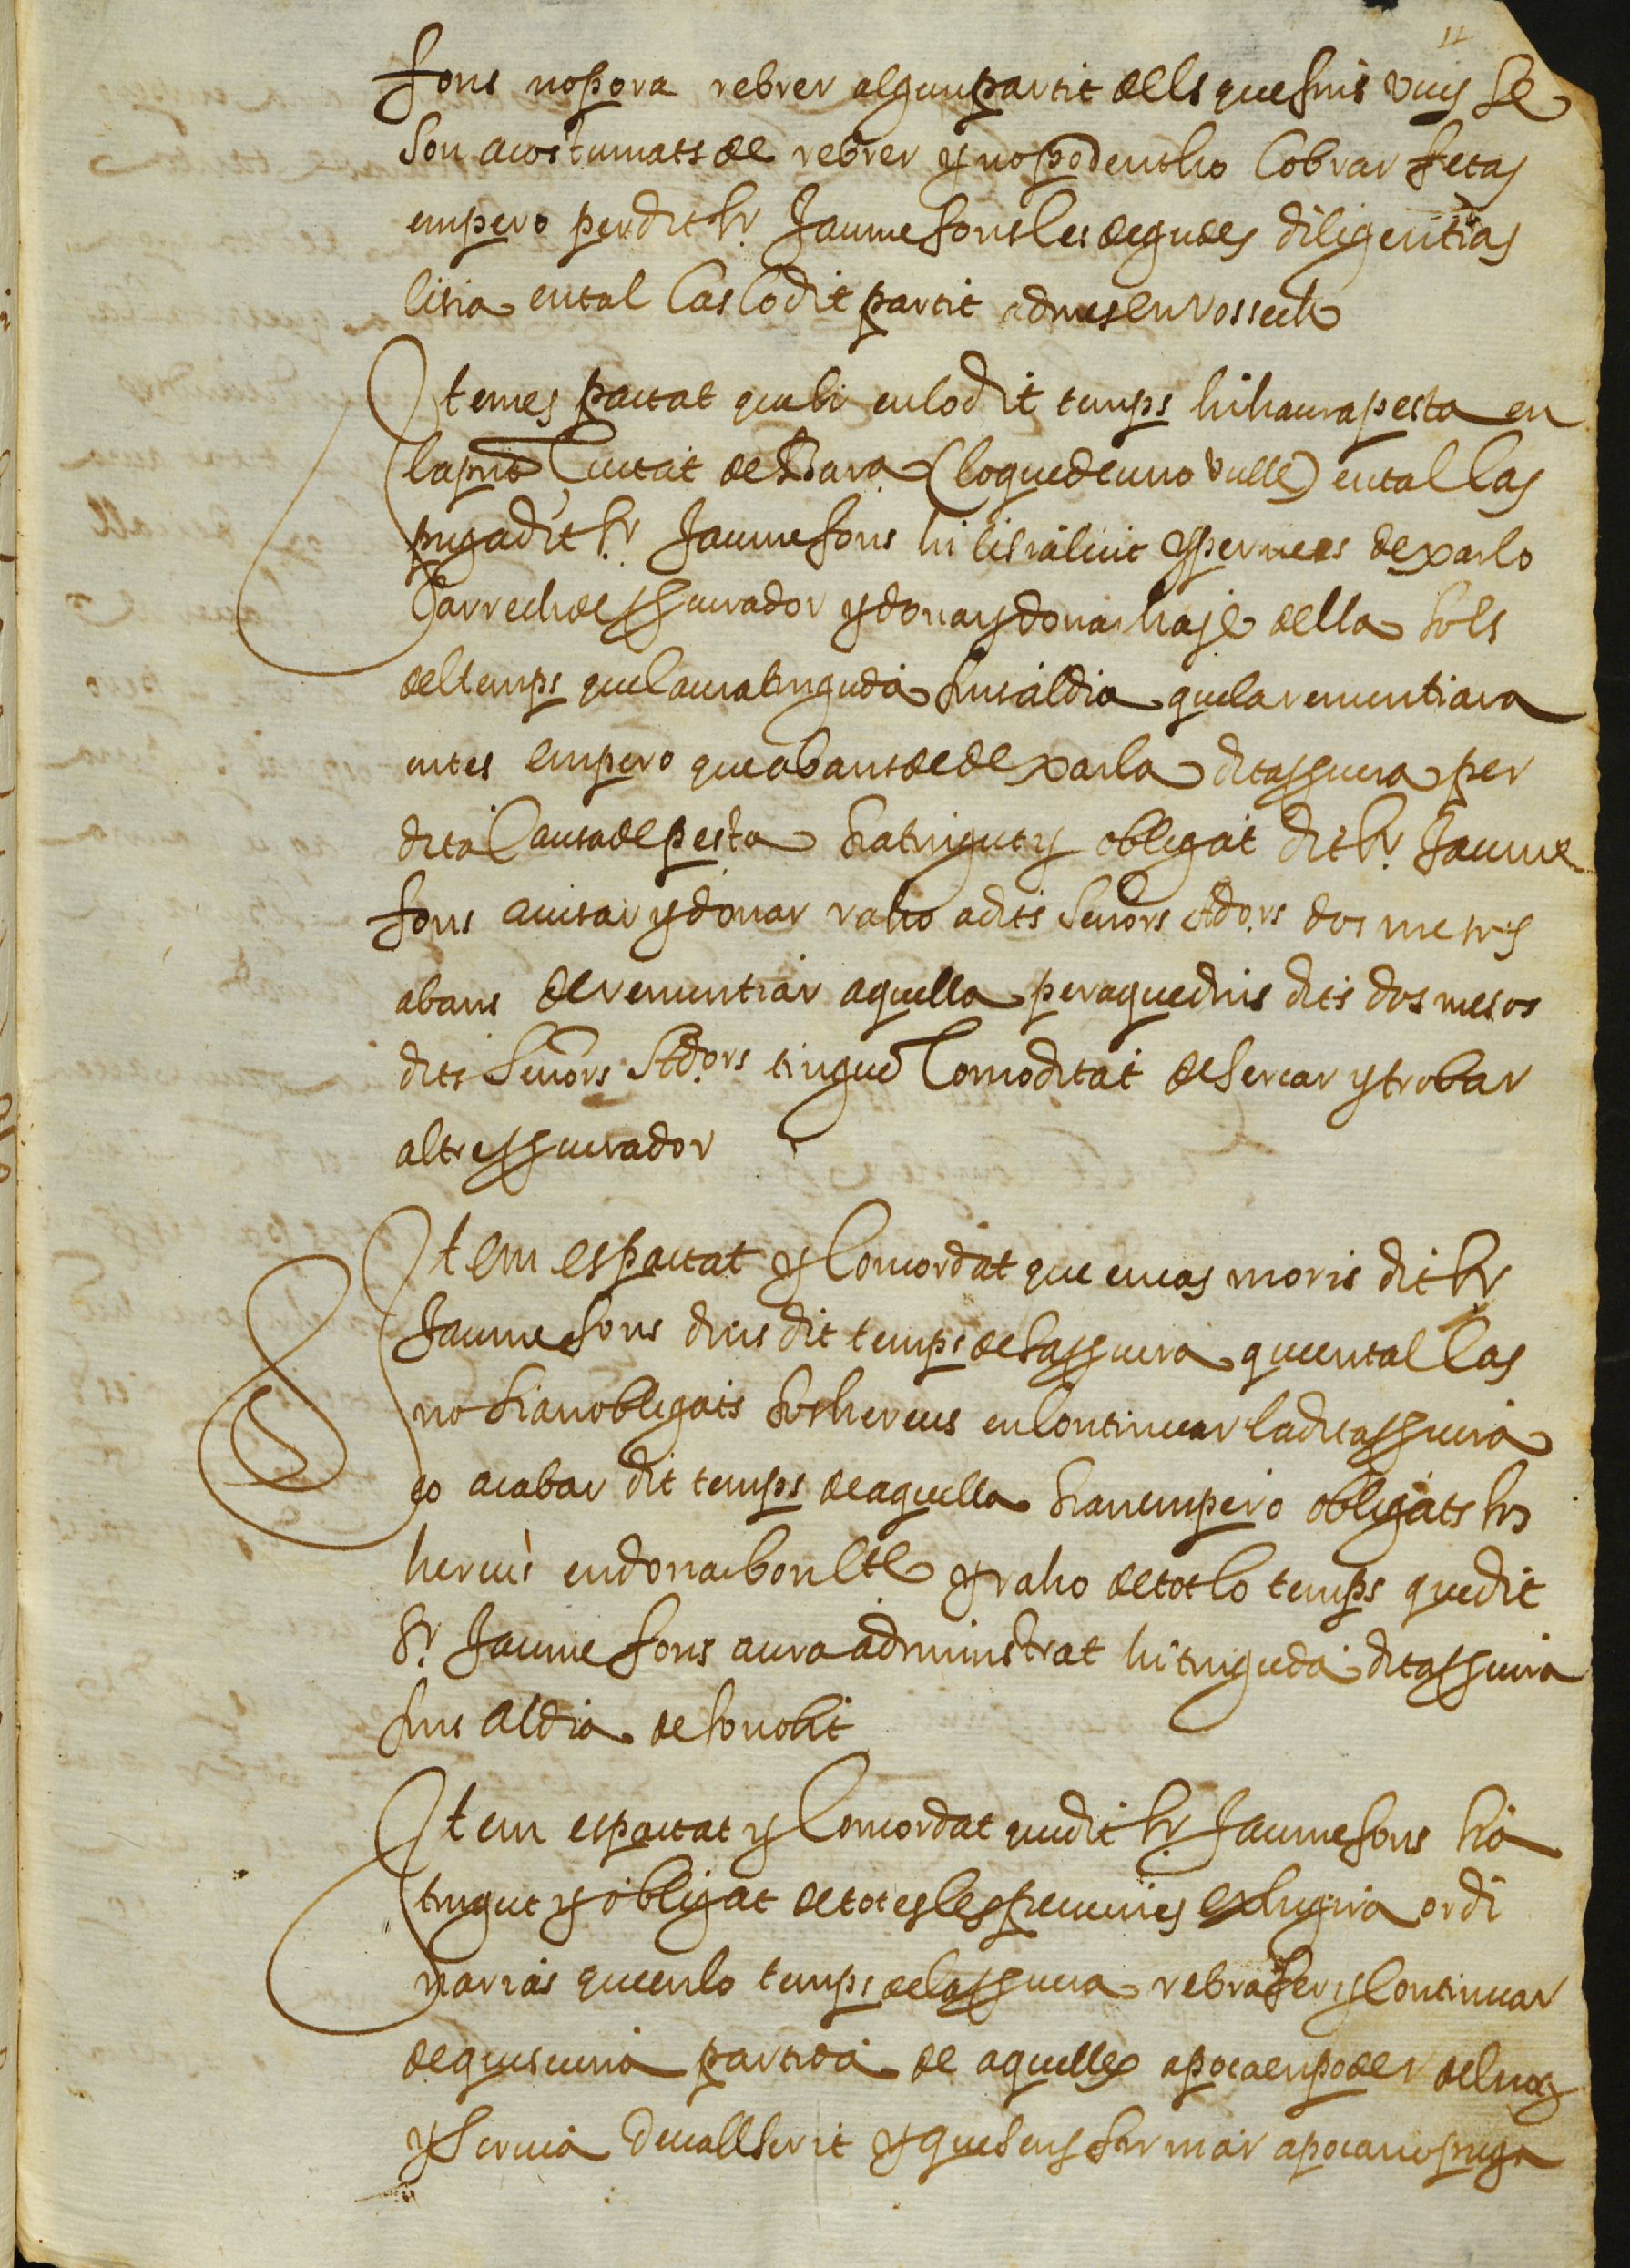 11
fons no pora rebrer algun partit dells que fins vuy se
son acostumats de rebrer y no podentho cobrar fetas
empero per dit Sr. Jaume fons les degudes diligentias
li sia en tal cas lo dit partit admes en
Item es pactat que si en lo dit temps hi haura pesta en
la pnt Ciutat de Bara. (lo que deu no vulle) en tal cas
puga dit Sr. Jaume fons hi li sia licit y permes dexar lo
carrech de assaurador y donar y dona raho de ella sols
del temps que la aura tinguda fins al dia que la renuntiara
entes empero que abans de dexar la dita
dita causa de pesta sia tingut y obligat dit Sr. Jaume
fons avisar y donar raho a dits Senors Adors. dos mesos
abans de renuntiar aquella pera que dins dits dos mesos
dits Senors Adors. tingue comoditat de sercar y trobar
altre
Item es pactat y concordat que en cas moris dit Sr.
Jaume fons dins dit temps de sa que en tal cas
no sian obligats sos hereus en continuar la dita
o acabar dit temps de aquella sian empero obligats sos
hereus en dona bon cte y raho de tot lo temps que dit
Sr. Jaume fons aura administrat hi tinguda dita
fins al dia de son obit
Item es pactat y concordat que dit Sr. Jaume fons sia
tingut y obligat de totes les pecunies ordi
narias que en lo temps de la rebra fer y continuar
de quiscuna partida de aquelles apoca en poder del not
y scriva devall scrit y que sens firmar apoca no puga